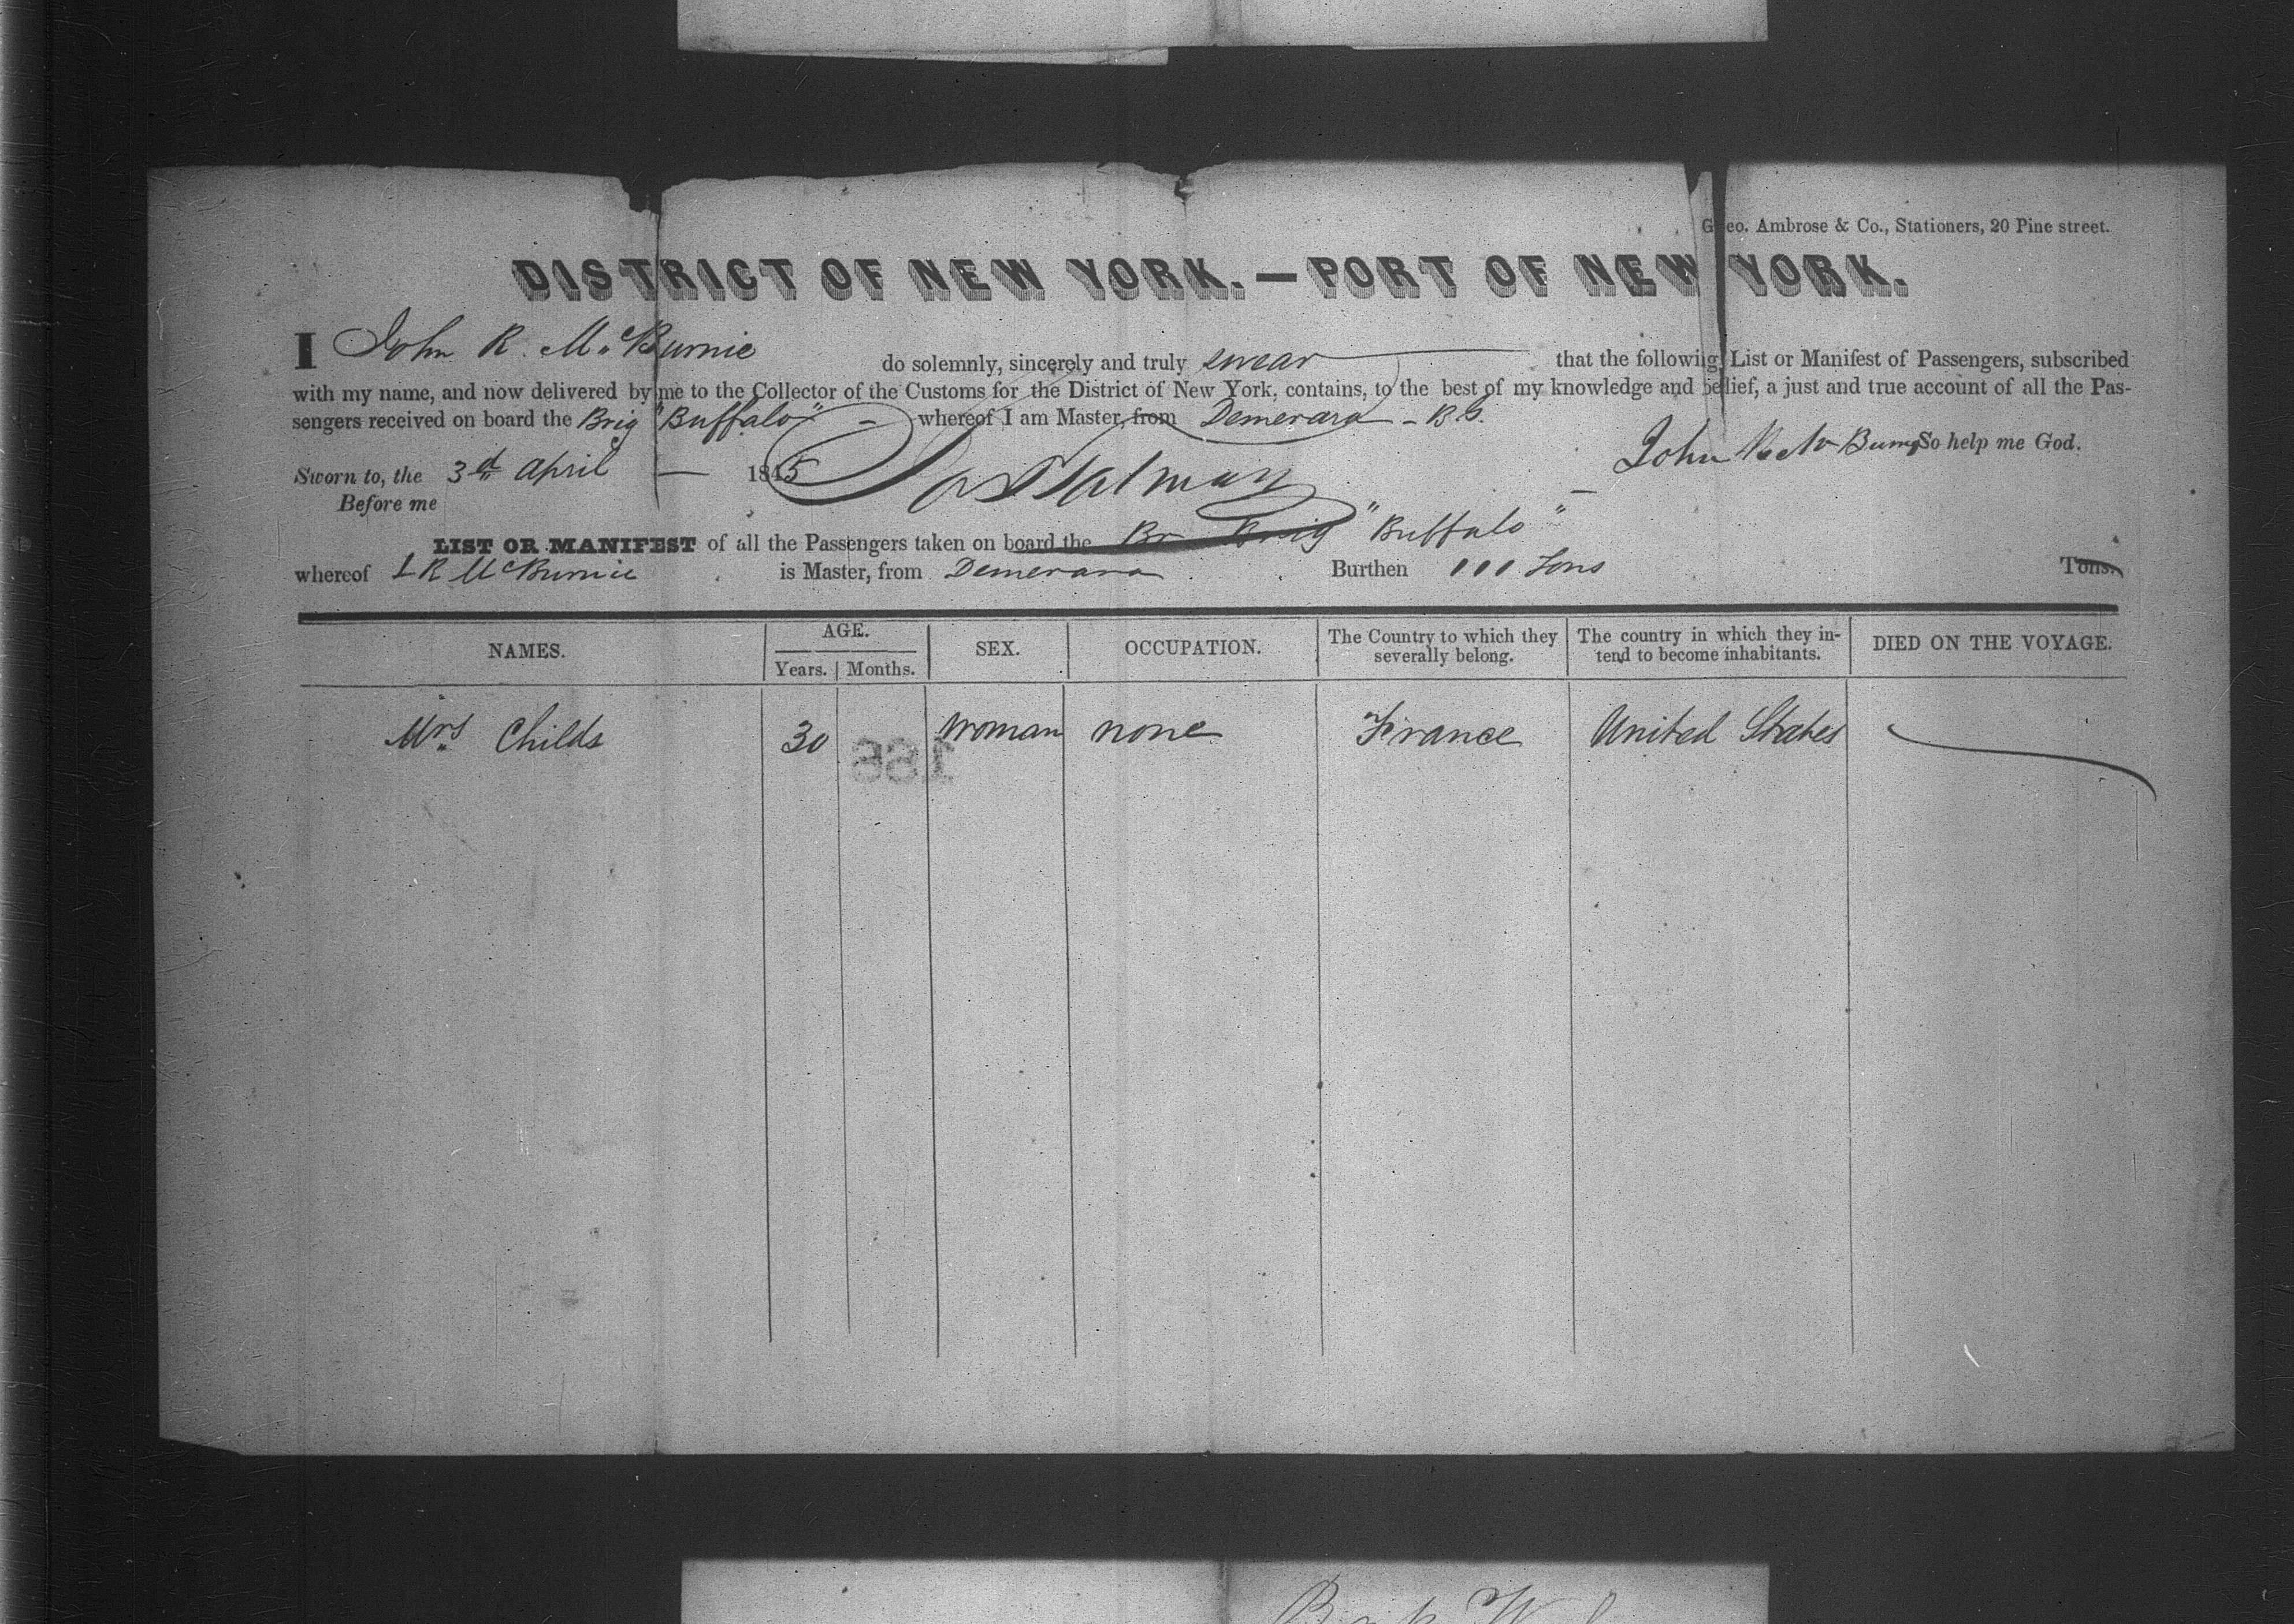 Geo. Ambrose & Co., Stationers, 20 Pine street.
DISTRICT OF NEW YORK.—PORT OF NEW YORK.
I John R. McBurnie do solemnly, sincerely and truly swear that the following List or Manifest of Passengers, subscribed
with my name, and now delivered by me to the Collector of the Customs for the District of New York, contains, to the best of my knowledge and belief, a just and true account of all the Pas-
sengers received on board the Brig "Buffalo" - whereof I am Master, from Demerara - B.G.
John So help me God.
Sworn to, the 3d April — 1845
Before me
LIST OR MANIFEST of all the Passengers taken on board the Br Brig "Buffalo"
whereof R McBurnie is Master, from Demerara Burthen 111 Tons Tons.
NAMES. AGE. SEX. OCCUPATION. The Country to which they severally belong. The country in which they in- tend to become inhabitants. DIED ON THE VOYAGE.
Years. Months.
Mrs Childs 30 Woman none France United States
186